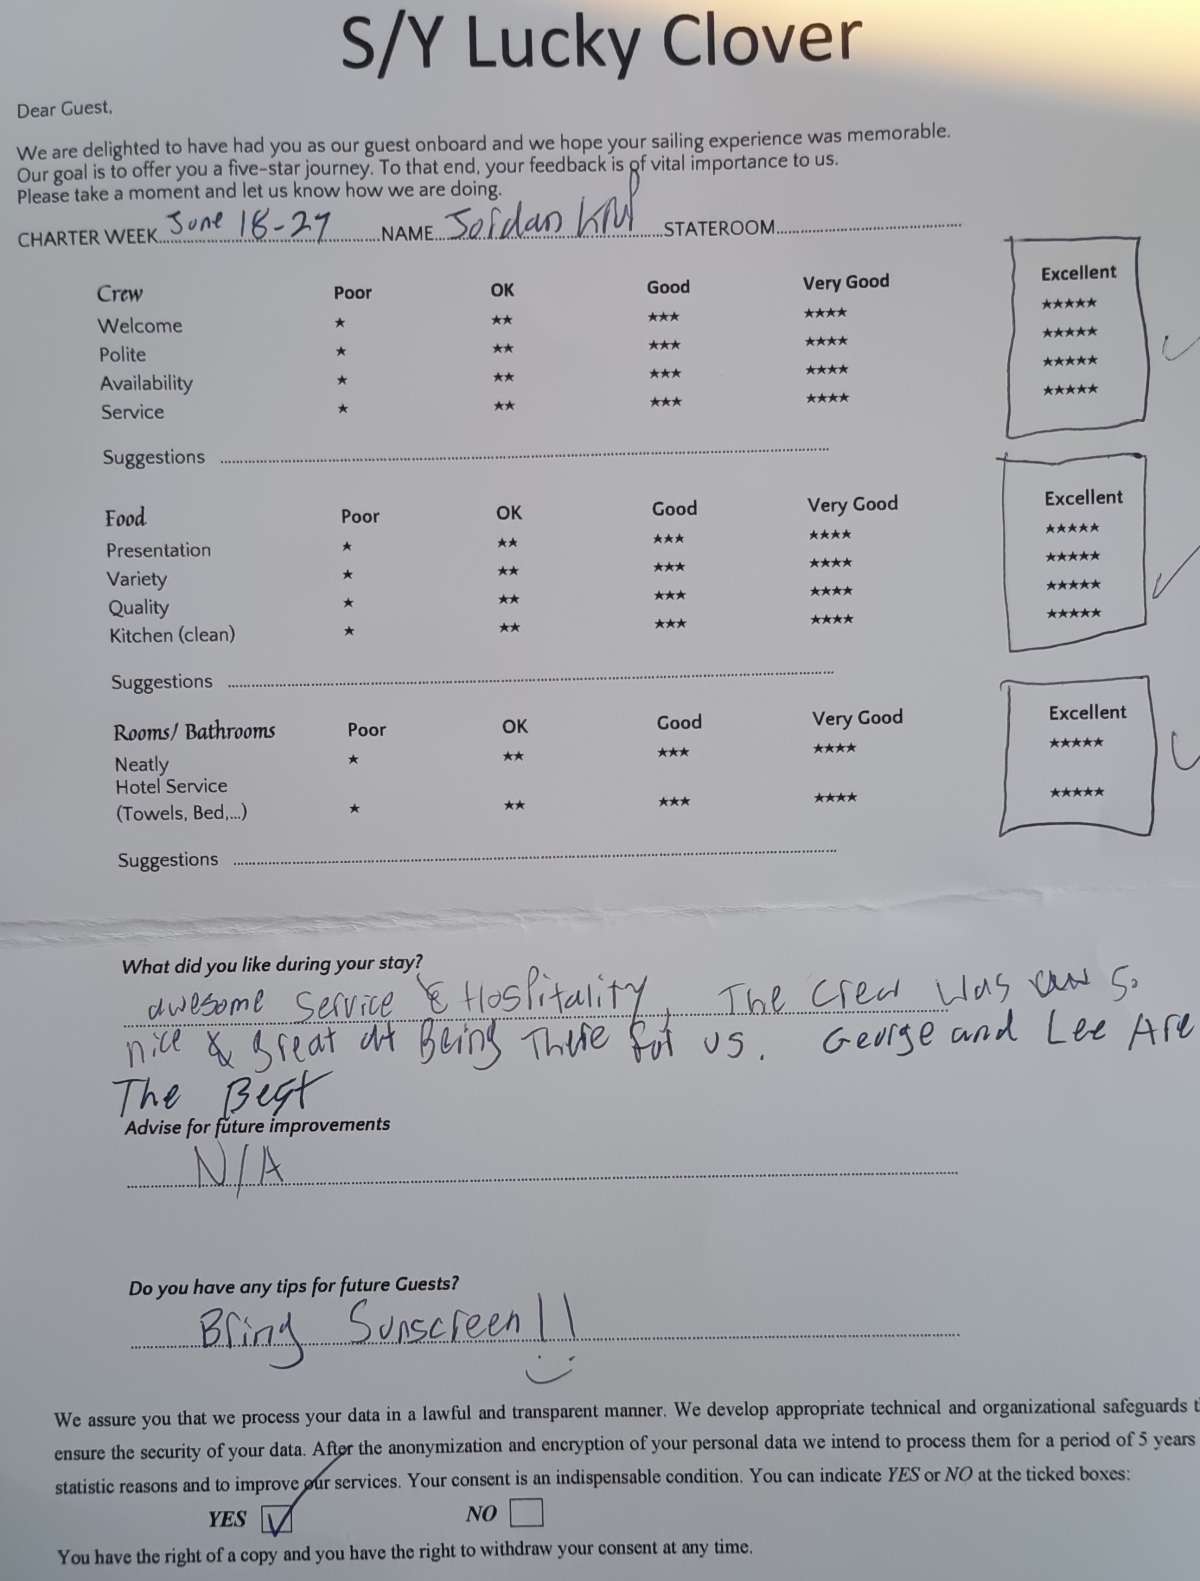 S/Y Lucky Clover
Dear Guest,
We are delighted to have had you as our guest onboard and we hope your sailing experience was memorable.
Our goal is to offer you a five-star journey. To that end, your feedback is of vital importance to us.
Please take a moment and let us know how we are doing.
CHARTER WEEK June 18-27 NAME Jordan STATEROOM
Crew Poor OK Good Very Good Excellent
Welcome ★ ★★ ★★★ ★★★★ ★★★★★
Polite ★ ★★ ★★★ ★★★★ ★★★★★
Availability ★ ★★ ★★★ ★★★★ ★★★★★
Service ★ ★★ ★★★ ★★★★ ★★★★★
Suggestions
Food Poor OK Good Very Good Excellent
Presentation ★ ★★ ★★★ ★★★★ ★★★★★
Variety ★ ★★ ★★★ ★★★★ ★★★★★
Quality ★ ★★ ★★★ ★★★★ ★★★★★
Kitchen (clean) ★ ★★ ★★★ ★★★★ ★★★★★
Suggestions
Rooms/ Bathrooms Poor OK Good Very Good Excellent
Neatly ★ ★★ ★★★ ★★★★ ★★★★★
Hotel Service
(Towels, Bed,...) ★ ★★ ★★★ ★★★★ ★★★★★
Suggestions
What did you like during your stay?
awesome service & Hospitality, The crew was so
nice & great at Being There for us. George and Lee Are
The Best
Advise for future improvements
N/A
Do you have any tips for future Guests?
Bring Sunscreen!!
We assure you that we process your data in a lawful and transparent manner. We develop appropriate technical and organizational safeguards t
ensure the security of your data. After the anonymization and encryption of your personal data we intend to process them for a period of 5 years
statistic reasons and to improve our services. Your consent is an indispensable condition. You can indicate YES or NO at the ticked boxes:
YES NO
You have the right of a copy and you have the right to withdraw your consent at any time.